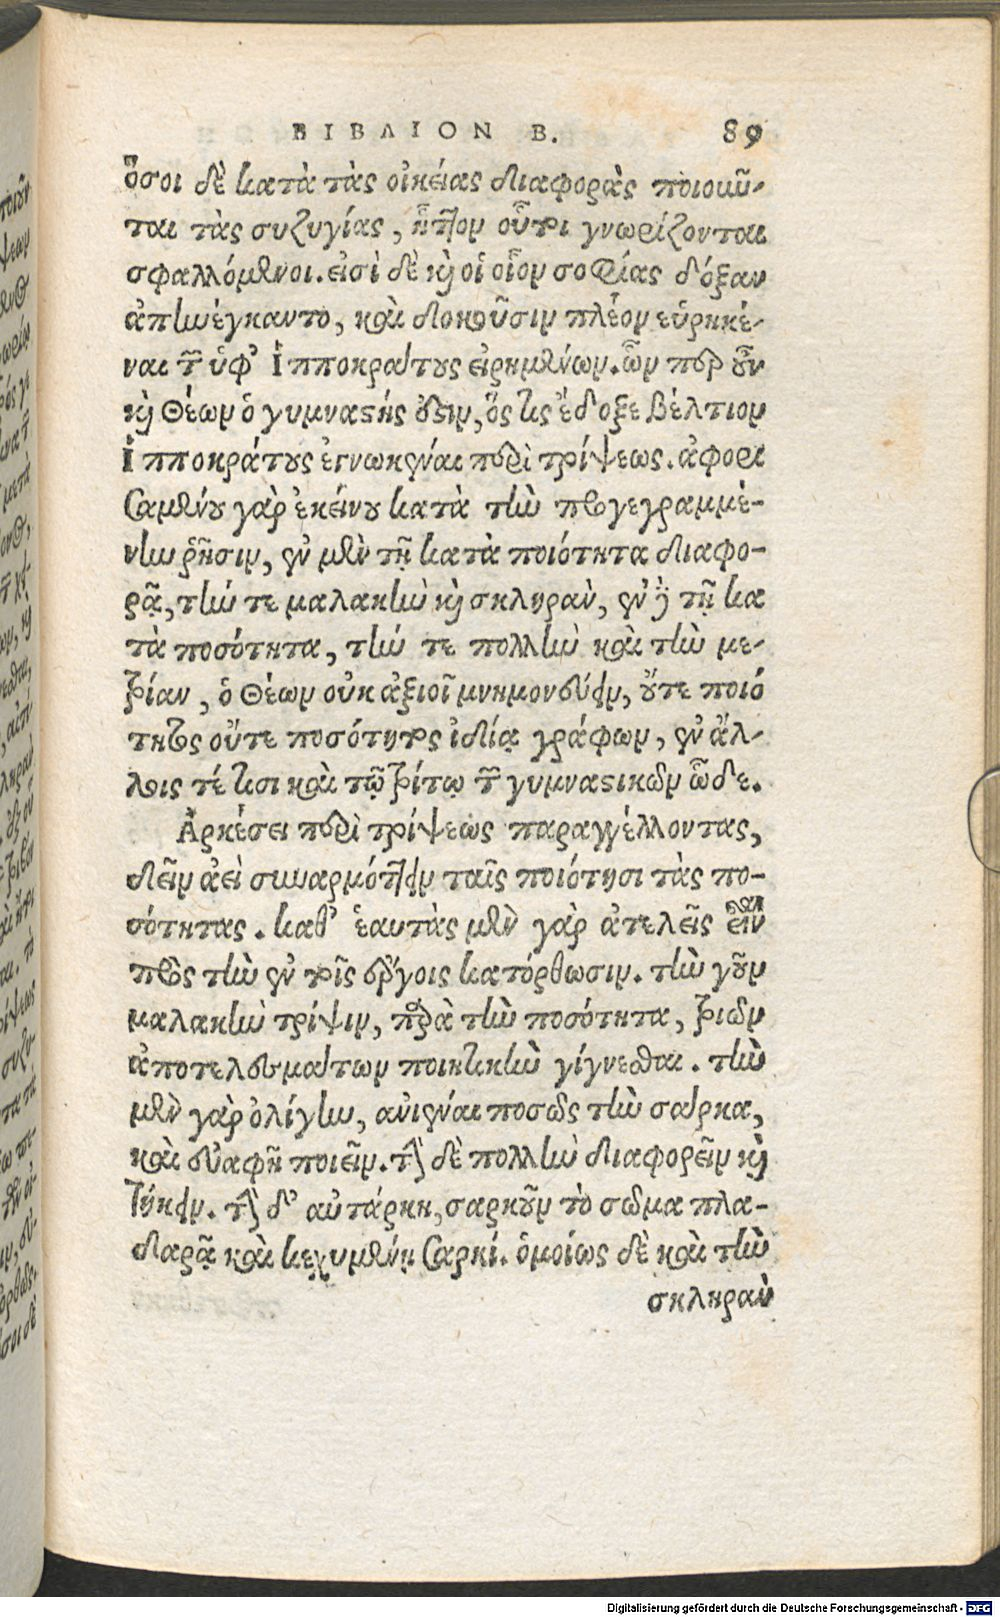 ΒΙΒΛΙΟΝ Β. 89
ὅσοι δὲ κατὰ τὰς οἰκείας διαφορὰς ποιοῦν-
ται τὰς συζυγίας, ἧττον οὗτοι γνωρίζονται
σφαλλόμενοι. εἰσὶ δὲ καὶ οἱ οἷον σοφίας δόξαν
ἀπηνέγκαντο, καὶ δοκοῦσιν πλέον εὑρηκέ-
ναι τῶν ὑφ' Ἱπποκράτους εἰρημένων. ὧν περ οὖν
καὶ Θέων ὁ γυμναστής ἐστιν, ὅς τις ἔδοξε βέλτιον
Ἱπποκράτους ἐγνωκέναι περὶ τρίψεως. ἀφορι
σαμένου γὰρ ἐκείνου κατὰ τὴν προγεγραμμέ-
νην ῥῆσιν, ἐν μὲν τῇ κατὰ ποιότητα διαφο-
ρᾷ, τήν τε μαλακὴν καὶ σκληρὰν, ἐν δὲ τῇ κα
τὰ ποσότητα, τήν τε πολλὴν καὶ τὴν με-
τρίαν, ὁ Θέων οὐκ ἀξιοῖ μνημονεύειν, οὔτε ποιό
τητος οὔτε ποσότητος ἰδίᾳ γράφων, ἐν ἄλ-
λοις τέ τισι καὶ τῷ τρίτῳ τῶν γυμναστικῶν ὧδε.
Ἀρκέσει περὶ τρίψεως παραγγέλλοντας,
δεῖν ἀεὶ συναρμόττειν ταῖς ποιότησι τὰς πο-
σότητας. καθ' ἑαυτὰς μὲν γὰρ ἀτελεῖς εἶναι
πρὸς τὴν ἐν τοῖς ἔργοις κατόρθωσιν. τὴν γοῦν
μαλακὴν τρίψιν, παρὰ τὴν ποσότητα, τριῶν
ἀποτελευμάτων ποιητικὴν γίγνεσθαι. τὴν
μὲν γὰρ ὀλίγην, ἀνιέναι ποσῶς τὴν σάρκα,
καὶ εὐαφῆ ποιεῖν. τὴν δὲ πολλὴν διαφορεῖν καὶ
τήκειν. τὴν δ' αὐτάρκη, σαρκοῦν τὸ σῶμα πλα-
δαρᾷ καὶ κεχυμένῃ σαρκί. ὁμοίως δὲ καὶ τὴν
σκληρὰν
Digitalisierung gefördert durch die Deutsche Forschungsgemeinschaft - DFG